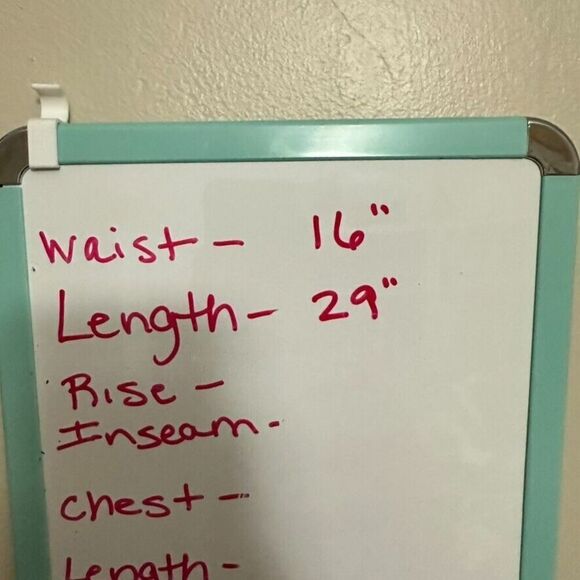 Waist - 16"
Length - 29"
Rise -
Inseam -
Chest -
Length -